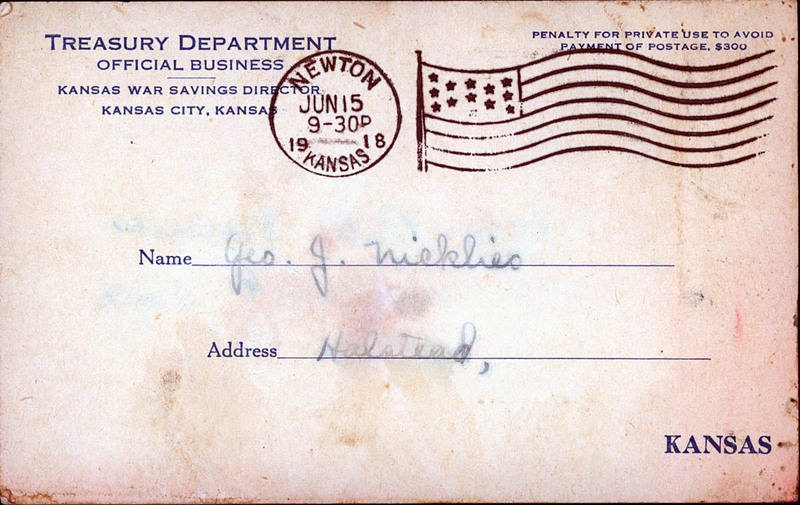 TREASURY DEPARTMENT
OFFICIAL BUSINESS
KANSAS WAR SAVINGS DIRECTOR
KANSAS CITY, KANSAS
PENALTY FOR PRIVATE USE TO AVOID
PAYMENT OF POSTAGE, $300
NEWTON
JUN 15
9-30P
1918
KANSAS
Name Geo. J. Nicklies
Address Halstead,
KANSAS